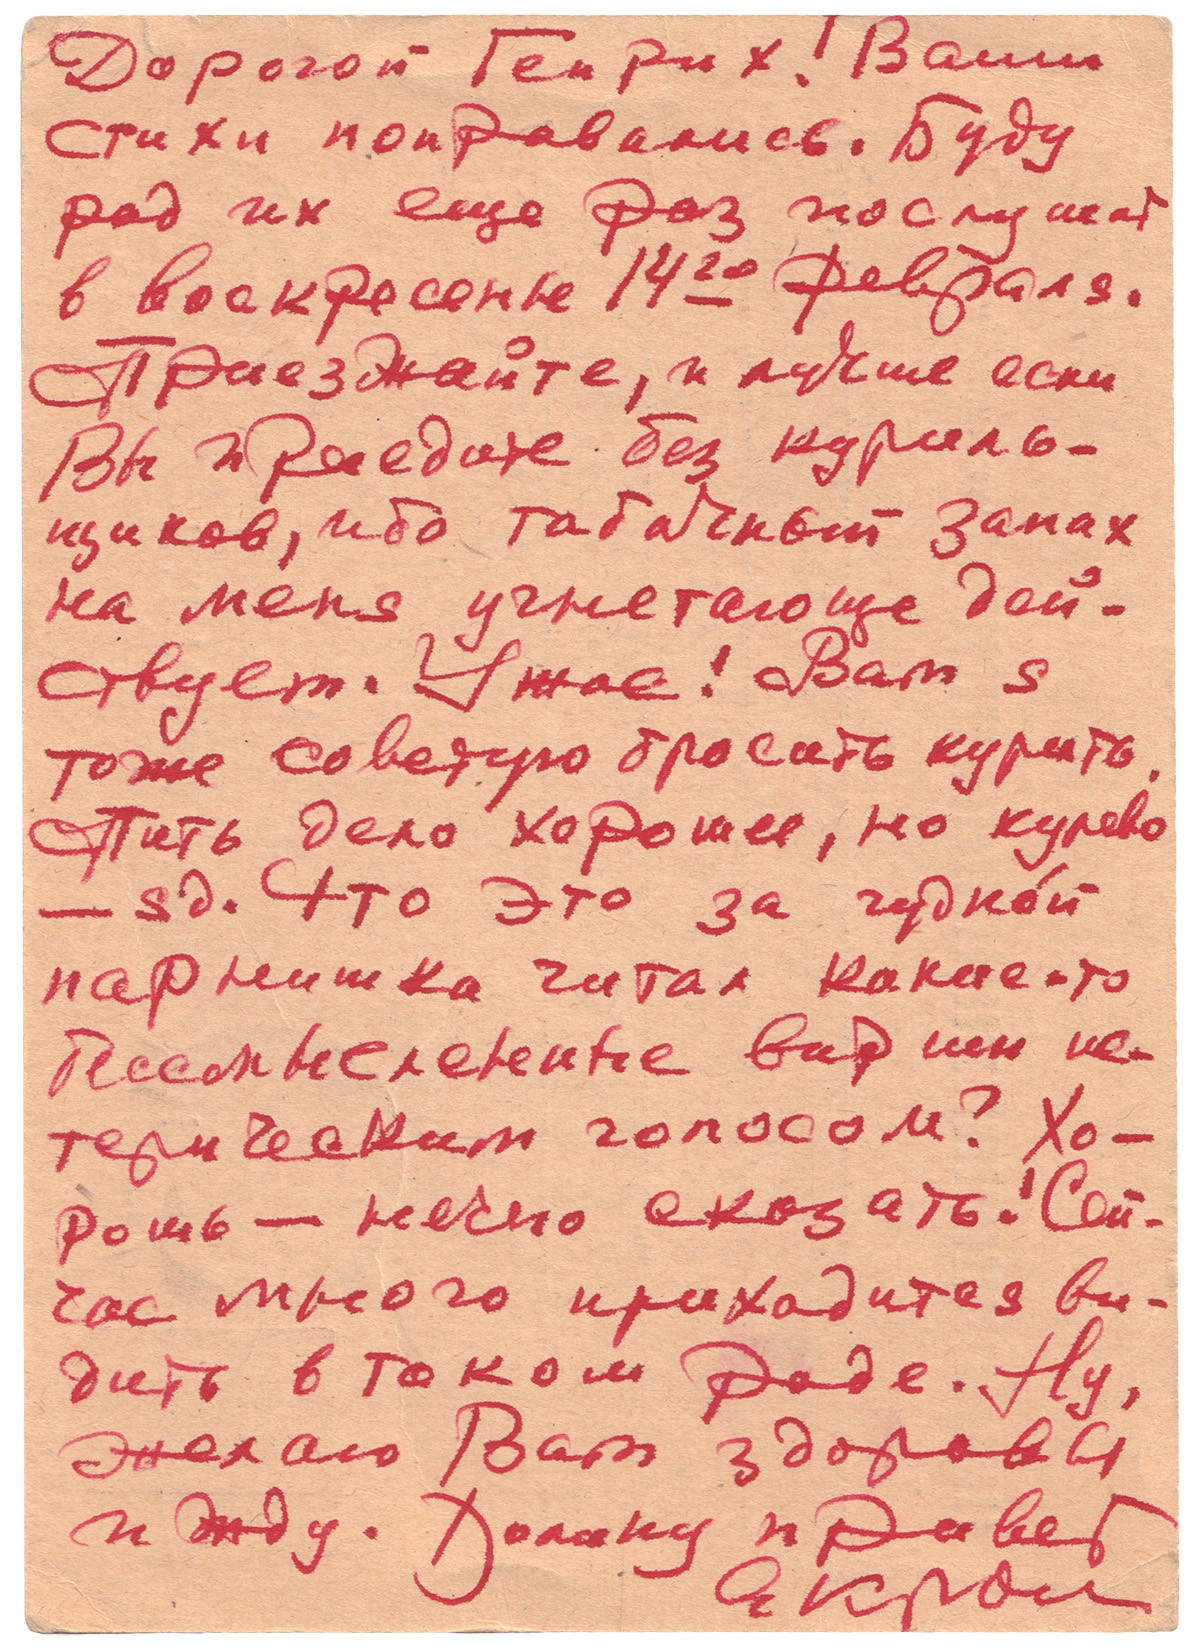 Дорогой Генрих! Ваши
стихи понравались. Буду
рад их еще раз послушат
в воскресенье 14го февраля.
Приезжайте, и лучше если
Вы приедите без куриль-
щиков, ибо табачный запах
на меня угнетающе дей-
ствует. Ужас! Вам я
тоже советую бросить курить.
Пить дело хорошее, но курево
— яд. Что это за чудной
парнишка читал какие-то
бессмысленные вирши ис-
терическим голосом? Хо-
рошь — нечего сказать! Сей-
час много приходится ви-
дить в таком роде. Ну,
желаю Вам здоровья
и жду. Долину привет